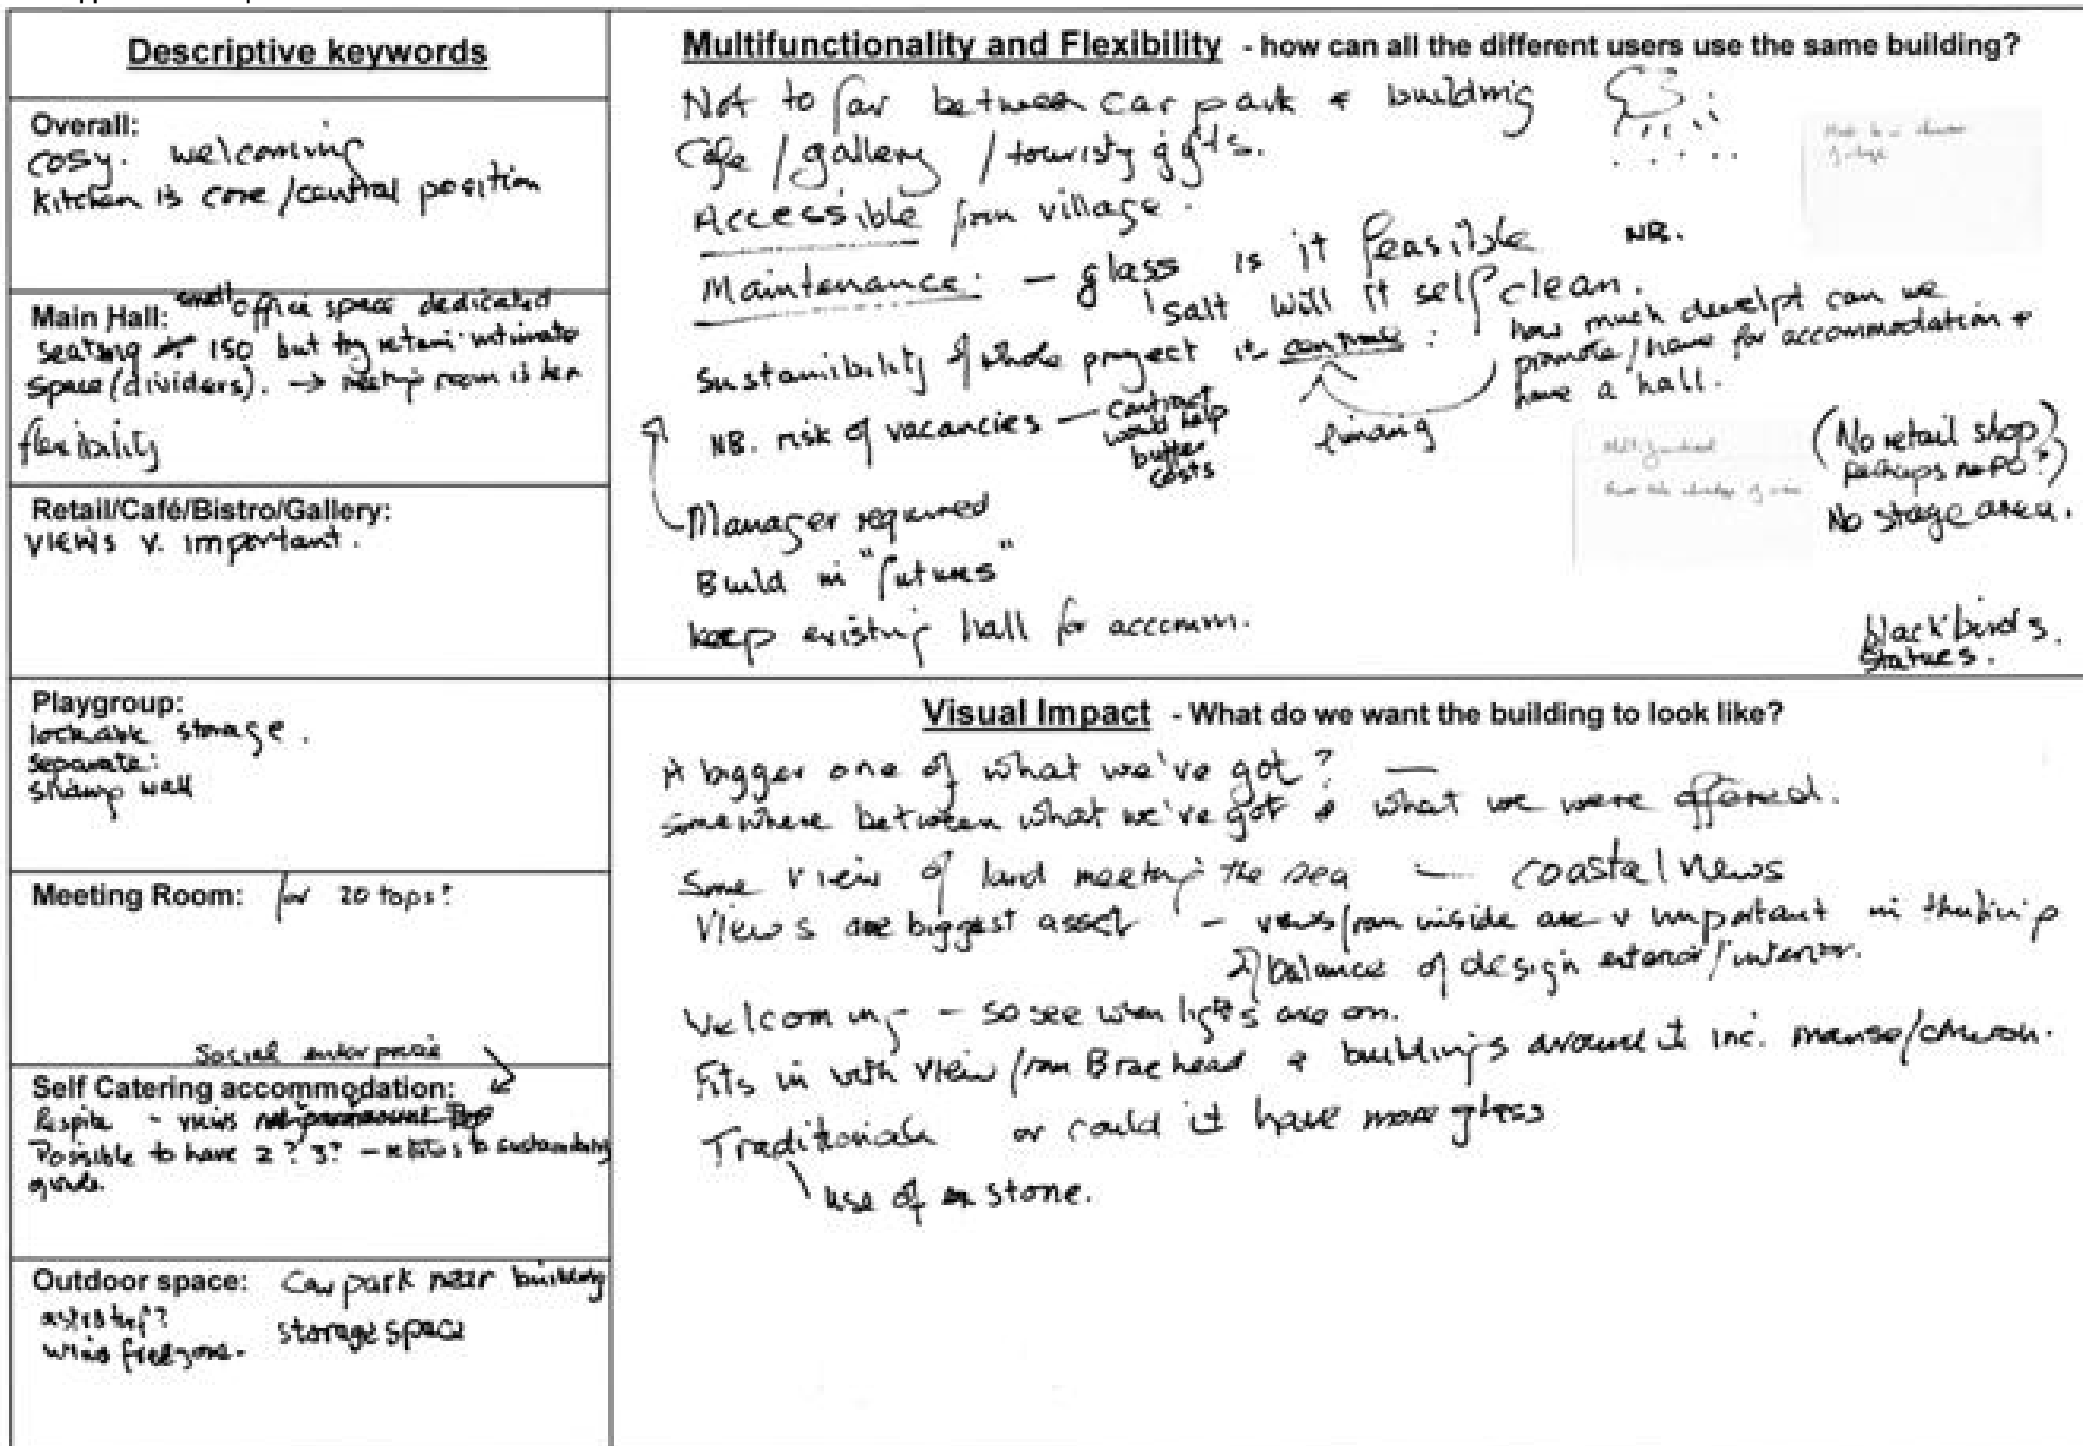 Descriptive keywords
Overall:
cosy. welcoming
kitchen is core/central position
Main Hall: small office space dedicated
seating 150 but try retain intimate
space (dividers). → meeting room is
flexibility
Retail/Café/Bistro/Gallery:
views v. important.
Playgroup:
lockable storage.
separate:
wall
Meeting Room: for 20 tops?
Social enterprise
Self Catering accommodation:
Respite - views
Possible to have 2? 3? - to sustainability
Outdoor space: Car park near building
astroturf?
wind free zone.
storage space
Multifunctionality and Flexibility - how can all the different users use the same building?
Not to far between car park + building
Cafe / gallery / touristy gifts.
Accessible from village.
Maintenance: - glass is it feasible NB.
salt will it self clean.
Sustainibility of whole project is :
how much develpt can we
promote/have for accommodation +
have a hall.
NB. risk of vacancies - contract
would help
buffer
costs
(No retail shop
perhaps no PO?)
No stage area.
Manager required
Build in "futures"
keep existing hall for accomm.
blackbirds.
statues.
Visual Impact - What do we want the building to look like?
A bigger one of what we've got? -
somewhere between what we've got & what we were offered.
Some view of land meeting the sea - coastal views
Views are biggest asset - views from inside are v important in thinking
of balance of design exterior/interior.
Welcoming - so see when lights are on.
Fits in with view from Braehead + buildings around it inc. manse/church.
Traditional or could it have more glass
use of stone.